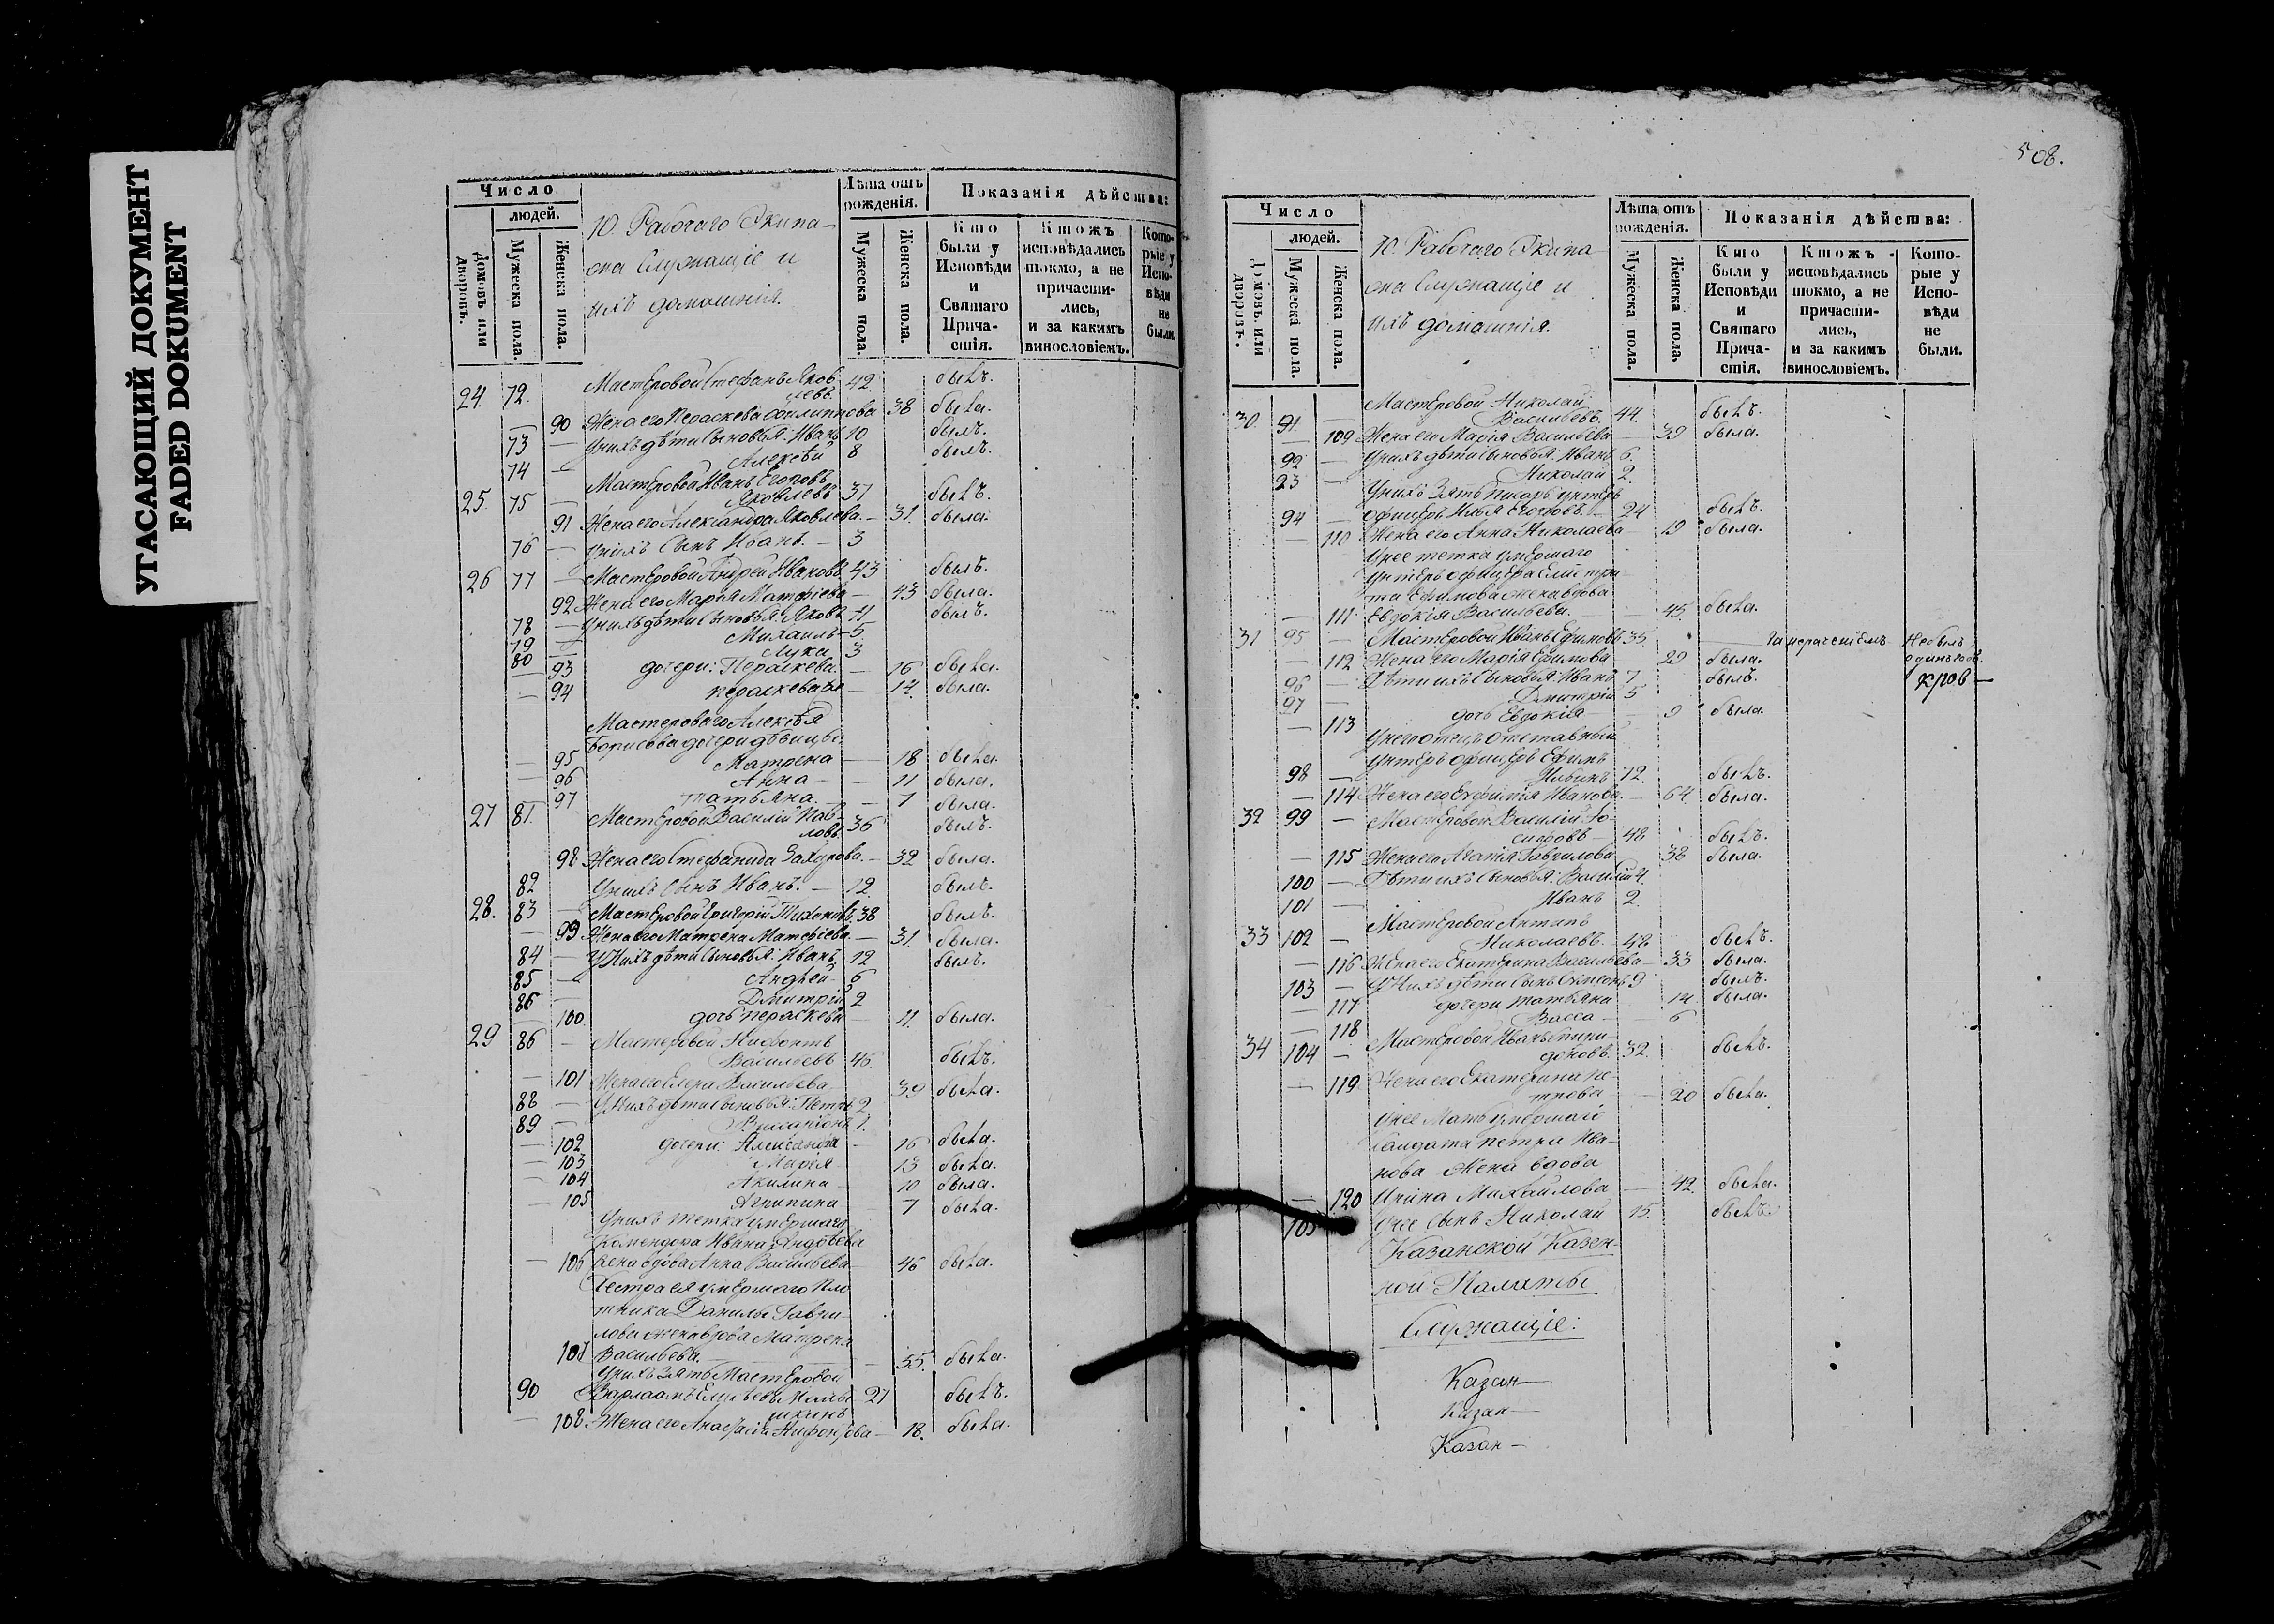 УТАСАЮЩИЙ ДОКУМЕНТ
FADED DOKUMENT
Число
людей.
Домовъ или дворовъ.
Мужеска пола.
Женска пола.
10. Рабочаго Экипа-
жа Служащіе и
ихъ домашнія.
Лѣта отъ рожденія.
Мужеска пола.
Женска пола.
Показанія дѣйства:
Кто были у Исповѣди и Святаго Прича-стія.
Ктожъ исповѣдались токмо, а не причасти-лись, и за какимъ винословіемъ.
Кото-рые у Испо-вѣди не были.
24. 72. Мастеровой Стефанъ Яков
левъ. 42. былъ.
— 90 Жена его Пераскева Филиппова 38 была.
73 — У нихъ дѣти сыновья: Иванъ 10 былъ.
74 — Алексѣй 8 былъ.
Мастеровой Иванъ Егоровъ
25. 75 — Яковлевъ 37 былъ.
91 Жена его Александра Яковлева. — 31. была.
76 — У нихъ Сынъ Иванъ. — 3
26 77 — Мастеровой Андрей Ивановъ 43 былъ.
92 Жена его Марія Матфіева — 43 была.
78 — У нихъ дѣти сыновья: Яковъ 11 былъ.
79 — Михаилъ — 5.
80 — Лука 3
— 93 дочери: Пераскева. — 16 была.
— 94 пераскева же — 14. была.
Мастероваго Алексѣя
Борисова дочери дѣвицы
— 95 Матрена — 18 была.
— 96 Анна — 11 была.
97 татьяна. — 7 была.
27 81. Мастеровой Василій Пав-
ловъ. 36 былъ.
98 Жена его Стефанида Захарова. — 32 была.
82 У нихъ сынъ Иванъ. — 12 былъ.
28. 83 — Мастеровой Григорій Тихоновъ. 38 былъ.
— 99 Жена его Матрена Матвіева. — 31. была.
84 — У Нихъ дѣти сыновья: Иванъ 12 былъ.
85 — Андрей — 6
86 — Дмитрій 2
— 100. дочь пераскева — 11. была.
29 86 — Мастеровой Нифонтъ
Васильевъ 45. былъ.
— 101 Жена его Елена Васильева — 39 была.
88 — У Нихъ дѣти сыновья: Петръ 2
89 — 1.
— 102 дочери: Александра — 16 была.
— 103 Марія 13 была.
— 104 Акилина — 10 была.
— 105 Агрипина 7 была.
У нихъ тетка умершаго
Комендора Ивана
— 106 жена вдова Анна Васильева — 46 была.
Сестра ея умершаго пло
тника Данилы Гаври-
лова жена вдова Матрена
107 Васильева. — 55. была.
У нихъ зять Мастеровой
90 Варлаамъ 27 былъ.
— 108 Жена его Анастасія Нифонтова — 18. была.
508.
Число
людей.
Домовъ или дворовъ.
Мужеска пола.
Женска пола.
10. Рабочаго Экипа
жа Служащіе и
ихъ домашнія.
Лѣта отъ рожденія.
Мужеска пола.
Женска пола.
Показанія дѣйства:
Кто были у Исповѣди и Святаго Прича-стія.
Ктожъ исповѣдались токмо, а не причасти-лись, и за какимъ винословіемъ.
Кото-рые у Испо-вѣди не были.
Мастеровой Николай
30. 91. — Васильевъ. 44. былъ.
— 109 Жена его Марія Васильева — 39 была.
92 — У нихъ дѣти сыновья: Иванъ 6.
23 — Николай 2.
У нихъ Зять писарь унтеръ
94 — офицеръ Илья Егоровъ. — 24 былъ.
— 110 Жена его Анна Николаева — 19 была.
У нее тетка умершаго
унтеръ офицера
Ефимова жена вдова
— 111. Евдокія Васильева. — 45. была.
31 95 — Мастеровой Иванъ Ефимовъ 35. — За нераченіемъ Небылъ
— 112 Жена его Марія Ефимова 29 была.
96 — Дѣти ихъ сыновья: Иванъ 7 былъ. кров —
97 — Дмитрій 5
— 113 дочь Евдокія — 9 была.
У него отецъ отставный
унтеръ офицеръ Ефимъ
98 — Ильинъ 72. былъ.
— 114 Жена его Евфимія Иванова. — 64. была.
32 99 — Мастеровой Василій Іо-
сифовъ — 48 былъ.
— 115 Жена его Агафія Гаврилова 38 была.
100 — Дѣти ихъ сыновья: Василій 4.
101 — Иванъ 2.
Мастеровой Антипъ
33 102 — Николаевъ. — 42 былъ.
— 116 Жена его Екатерина Васильева — 33 была.
103 — У Нихъ дѣти сынъ Симеонъ 9 былъ.
— 117 дочери татьяна 14. была.
— 118 Васса — 6
34 104 — Мастеровой Иванъ Спири
доновъ. 32. былъ.
— 119 Жена его Екатерина пе-
трова — 20 была.
У нее Мать умершаго
Салдата петра Ива-
нова жена вдова
— 120 Ирина Михайлова — 42. была.
105 У нее сынъ Николай 15. былъ.
Казанской Казен-
ной Палаты
Служащіе:
Казан—
Казан—
Казан—